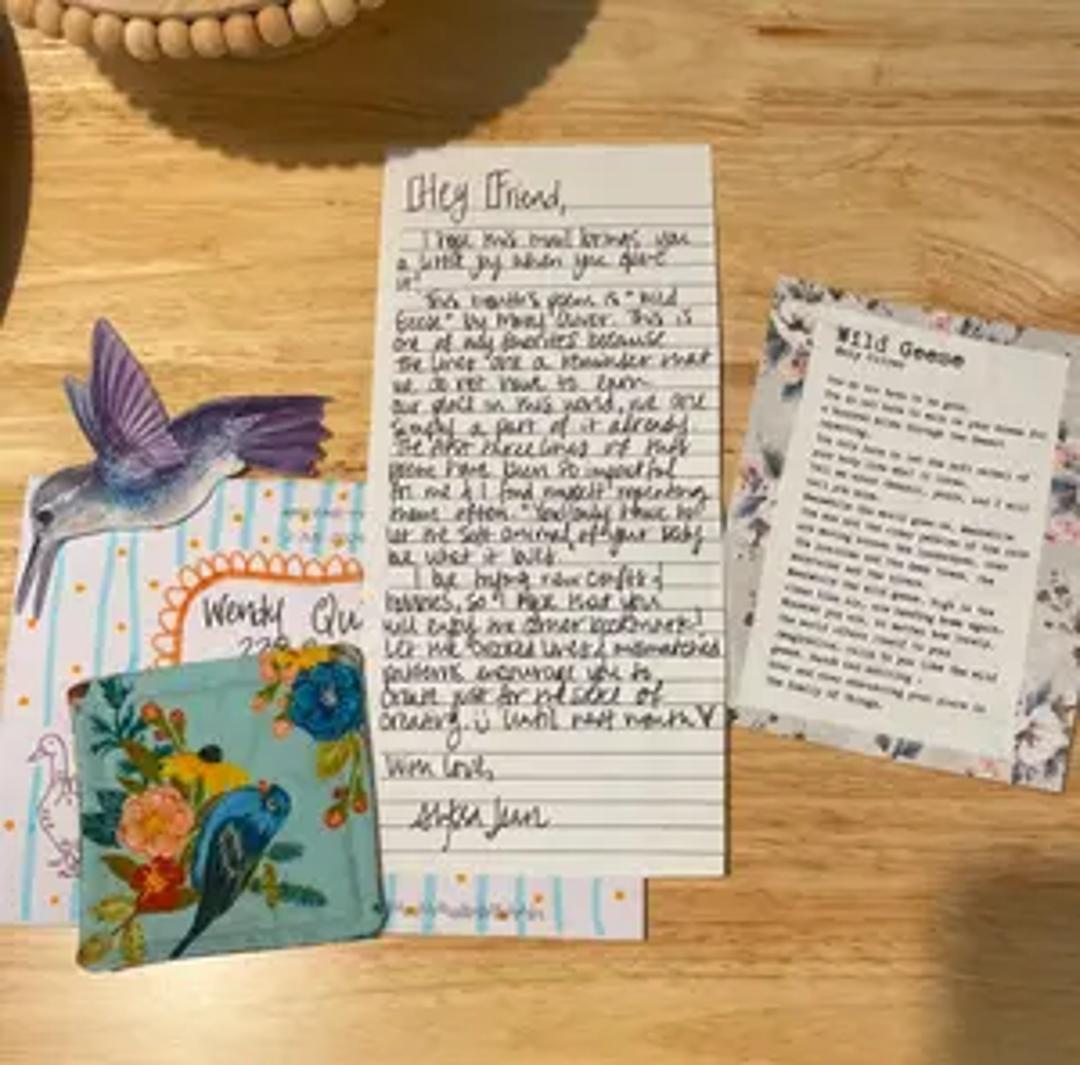 Hey Friend,
I hope this mail brings you
a little joy when you open
it!
This month's poem is "Wild
Geese" by Mary Oliver. This is
one of my favorites because
the lines are a reminder that
we do not have to earn
our place in this world, we are
simply a part of it already
The first three lines of this
poem have been so impactful
for me & I find myself repeating
them often. "You only have to
let the soft animal of your body
be what it loves.
I be trying new crafts &
hobbies, so I hope that you
will enjoy the corner bookmark!
Let the crooked lines & mismatched
patterns encourage you to
create just for the sake of
creating. :) Until next month ♥
With love,
Wendy Qu
Wild Geese
Mary Oliver
You do not have to be good.
You do not have to walk on your knees for
a hundred miles through the desert
repenting.
You only have to let the soft animal of
your body love what it loves.
Tell me about despair, yours, and I will
tell you mine.
Meanwhile the world goes on. Meanwhile
the sun and the clear pebbles of the rain
are moving across the landscapes, over
the prairies and the deep trees, the
mountains and the rivers.
Meanwhile the wild geese, high in the
clean blue air, are heading home again.
Whoever you are, no matter how lonely,
the world offers itself to your
imagination, calls to you like the wild
geese, harsh and exciting -
over and over announcing your place in
the family of things.